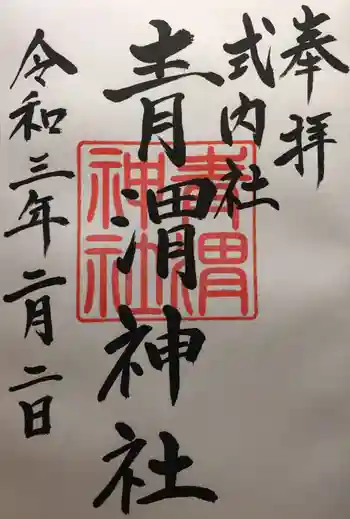 奉拝
式内社
青渭神社
令和三年二月二日
青渭神社